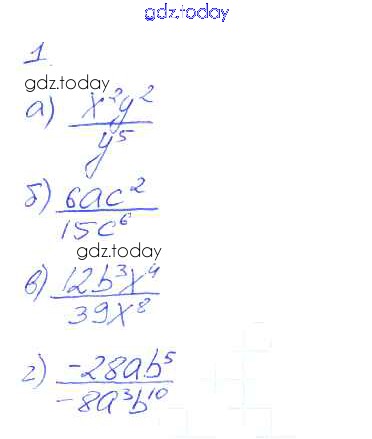 gdz.today
1
gdz.today
а) x³y² / y⁵
б) 6ac² / 15c⁶
gdz.today
в) 12b³x⁴ / 39x⁸
г) -28ab⁵ / -8a³b¹⁰